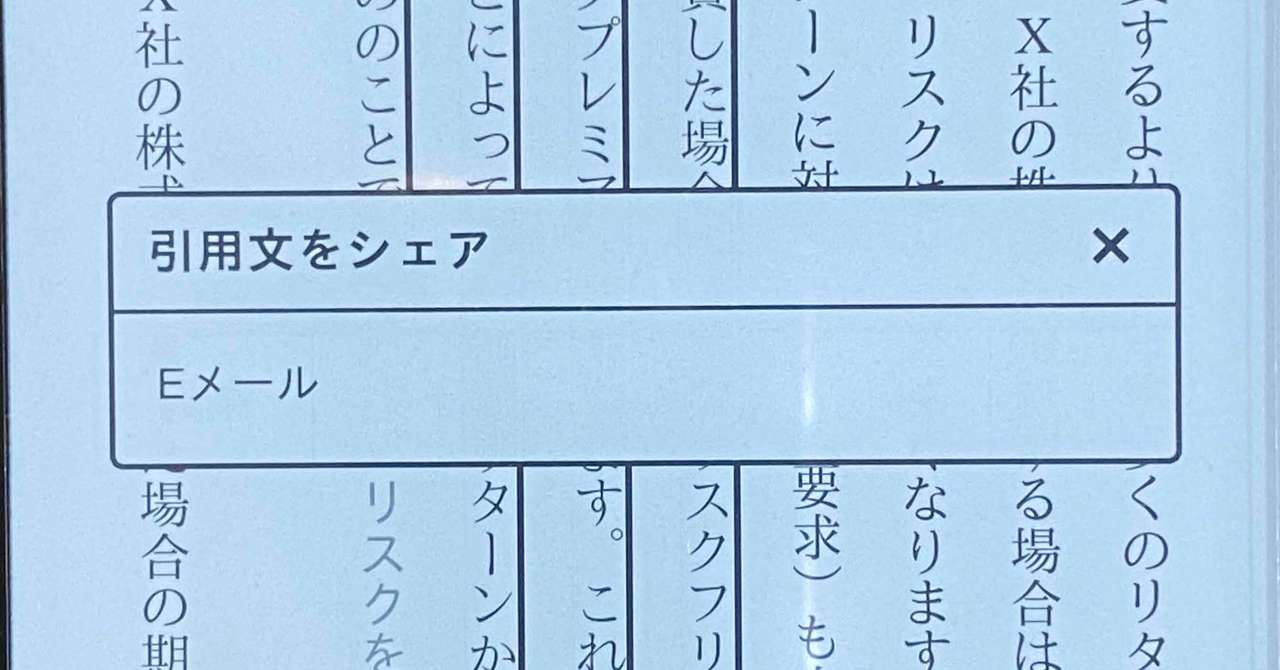 するよ
くのリタ
X社の
る場合は
リスク
なります
ーンに対
要求)も
した場
スクフリ
プレミ
す。これ
によって
ターンか
のこと
リスクを
社の株
場合の期
引用文をシェア
×
Eメール